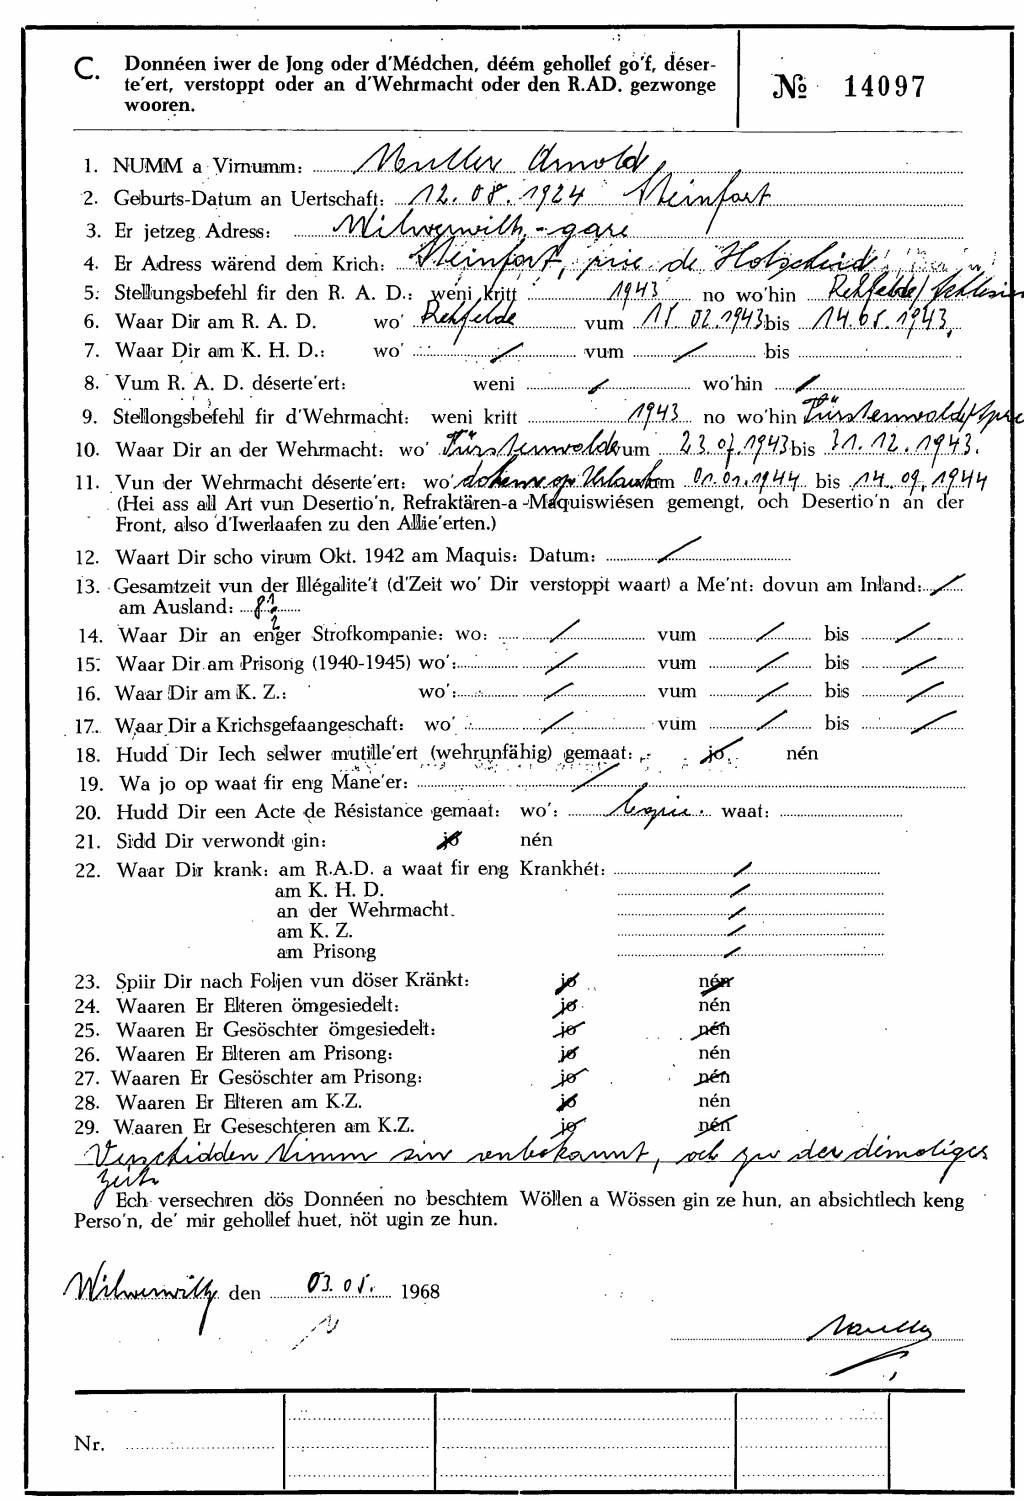 C. Donnéen iwer de Jong oder d'Médchen, déém gehollef go'f, déser-
te'ert, verstoppt oder an d'Wehrmacht oder den R.AD. gezwonge
wooren.
№ 14097
1. NUMM a Virnumm: Muller Arnold
2. Geburts-Datum an Uertschaft: 12.08.1924 Steinfort
3. Er jetzeg Adress: Wilwerwiltz-gare
4. Er Adress wärend dem Krich: Steinfort, rue de Hobscheid
5. Stellungsbefehl fir den R. A. D.: weni kritt 1943 no wo'hin Rehfelde/Schlesien
6. Waar Dir am R. A. D. wo' Rehfelde vum 15 02.1943 bis 14.05.1943.
7. Waar Dir am K. H. D.: wo' / vum / bis
8. Vum R. A. D. déserte'ert: weni / wo'hin /
9. Stellongsbefehl fir d'Wehrmacht: weni kritt 1943 no wo'hin Fürstenwalde/Spree
10. Waar Dir an der Wehrmacht: wo' Fürstenwalde vum 23.07.1943 bis 31.12.1943.
11. Vun der Wehrmacht déserte'ert: wo' doheem op Urlaub vum 01.01.1944 bis 14.09.1944
(Hei ass all Art vun Desertio'n, Refraktären-a -Maquiswiésen gemengt, och Desertio'n an der
Front, also d'Iwerlaafen zu den Allie'erten.)
12. Waart Dir scho virum Okt. 1942 am Maquis: Datum: /
13. Gesamtzeit vun der Illégalite't (d'Zeit wo' Dir verstoppt waart) a Me'nt: dovun am Inland: /
am Ausland: 8 1/2
14. Waar Dir an enger Strofkompanie: wo: / vum / bis /
15. Waar Dir am Prisong (1940-1945) wo': / vum / bis /
16. Waar Dir am K. Z.: wo': / vum / bis /
17. Waar Dir a Krichsgefaangeschaft: wo' / vum / bis /
18. Hudd Dir Iech selwer mutille'ert (wehrunfähig) gemaat: jo nén
19. Wa jo op waat fir eng Mane'er: /
20. Hudd Dir een Acte de Résistance gemaat: wo': waat:
21. Sidd Dir verwondt gin: jo nén
22. Waar Dir krank: am R.A.D. a waat fir eng Krankhét: /
am K. H. D. /
an der Wehrmacht. /
am K. Z. /
am Prisong /
23. Spiir Dir nach Foljen vun döser Kränkt: jo nén
24. Waaren Er Elteren ömgesiedelt: jo nén
25. Waaren Er Gesöschter ömgesiedelt: jo nén
26. Waaren Er Elteren am Prisong: jo nén
27. Waaren Er Gesöschter am Prisong: jo nén
28. Waaren Er Elteren am K.Z. jo nén
29. Waaren Er Geseschteren am K.Z. jo nén
Verschidden Nimm sin onbekannt, och zu der démoliger
Zeit.
Ech versechren dös Donnéen no beschtem Wöllen a Wössen gin ze hun, an absichtlech keng
Perso'n, de' mir gehollef huet, nöt ugin ze hun.
Wilwerwiltz den 03.05. 1968
Muller
Nr.